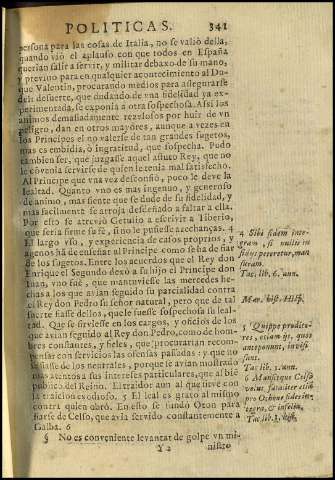 POLITICAS. 341
persona para las cosas de Italia, no se valiò della,
quando viò el aplauso con que todos en España
querian salir a servir, y militar debaxo de su mano,
y previno para en qualquier acontecimiento al Du-
que Valentin, procurando medios para assegurarse
de su suerte, que dudando de vna fidelidad ya ex-
perimentada, se exponia a otra sospechosa. Assi los
animos demasiadamente rezelosos por huir de vn
peligro, dan en otros mayores, aunque a vezes en
los Principes el no valerse de tan grandes sugetos,
mas es embidia, ò ingratitud, que sospecha. Pudo
tambien ser, que juzgasse aquel astuto Rey, que no
le convenia servirse de quien le tenia mal satisfecho.
Al Principe que vna vez desconfiò, poco le deve la
lealtad. Quanto vno es mas ingenuo, y generoso
de animo, mas siente que se dude de su fidelidad, y
mas facilmente se arroja desdeñado a faltar a ella.
Por esto se atreviò Getulio a escrivir a Tiberio,
que seria firme su fè, sino le pusiesse azechanças. 4
El largo vso, y experiencia de casos proprios, y
agenos hà de enseñar al Principe como se hà de fiar
de los sugetos. Entre los acuerdos que el Rey don
Enrique el Segundo dexò a su hijo el Principe don
Iuan, vno fuè, que mantuviesse las mercedes he-
chas a los que avian seguido su parcialidad contra
el Rey don Pedro su señor natural, pero que de tal
suerte fiasse dellos, que le fuesse sospechosa su leal-
tad. Que se sirviesse en los cargos, y oficios de los
que avian seguido al Rey don Pedro, como de hom-
bres constantes, y fieles, que procurarian recom-
pensar con servicios las ofensas passadas: y que no
se fiasse de los neutrales, porque se avian mostrado
mas atentos a sus intereses particulares, que al bien
publico del Reino. El traidor aun al que sirve con
la traicion es odioso. 5 El leal es grato al mismo
contra quien obrò. En esto se fundò Oton para
fiarse de Celso, que avia servido constantemente a
Galba. 6
§ No es conveniente levantar de golpe vn mi-
Y 2 nistro
4 Sibi fidem inte-
gram, & si nullis in-
sidiis peteretur, man-
suram.
Tac. lib. 6. ann.
Mar. hist. Hisp.
5 Quippe prodito-
res, etiam ijs, quos
anteponunt, invisi
sunt.
Tac. lib. 1. ann.
6 Mansitque Celso
velut fataliter etiam
pro Othone fides in-
tegra, & infelix.
Tac. lib. 1. hist.